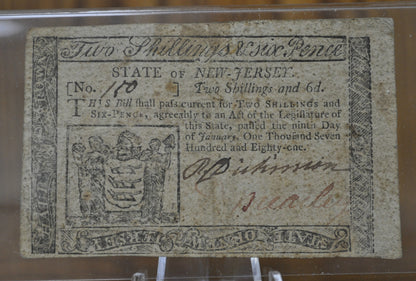 Two Shillings & six Pence
STATE OF NEW-JERSEY.
[No. 150 ] Two Shillings and 6d.
THIS Bill shall pass current for TWO SHILLINGS and
SIX-PENCE, agreeably to an Act of the Legislature of
this State, passed the ninth Day
of January, One Thousand Seven
Hundred and Eighty-one.
Dickinson